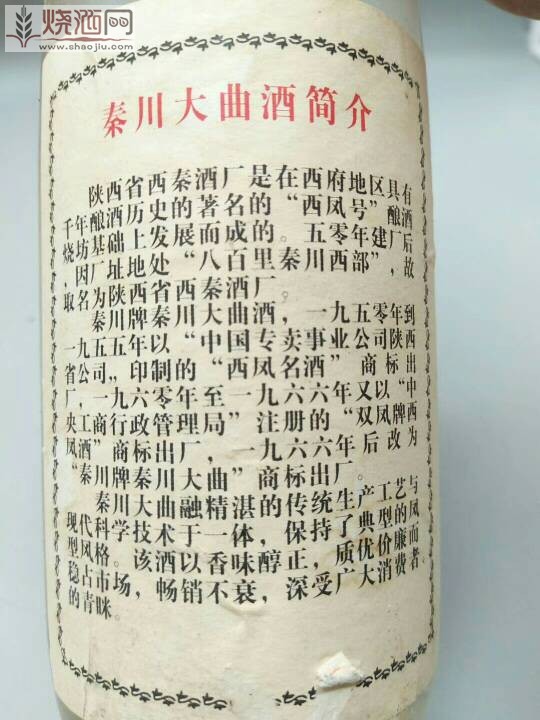 烧酒网
www.shaojiu.com
秦川大曲酒简介
陕西省西秦酒厂是在西府地区具有
千年酿酒历史的著名的“西凤号”酿酒
烧坊基础上发展而成的。五零年建厂后
，因厂址地处“八百里秦川西部”，故
取名为陕西省西秦酒厂。
秦川牌秦川大曲酒，一九五零年到
一九五五年以“中国专卖事业公司陕西
省公司”印制的“西凤名酒”商标出
厂，一九六零年至一九六六年又以“中
央工商行政管理局”注册的“双凤牌西
凤酒”商标出厂，一九六六年后改为
“秦川牌秦川大曲”商标出厂。
秦川大曲融精湛的传统生产工艺与
现代科学技术于一体，保持了典型的凤
型风格。该酒以香味醇正，质优价廉而
稳占市场，畅销不衰，深受广大消费者
的青睐。